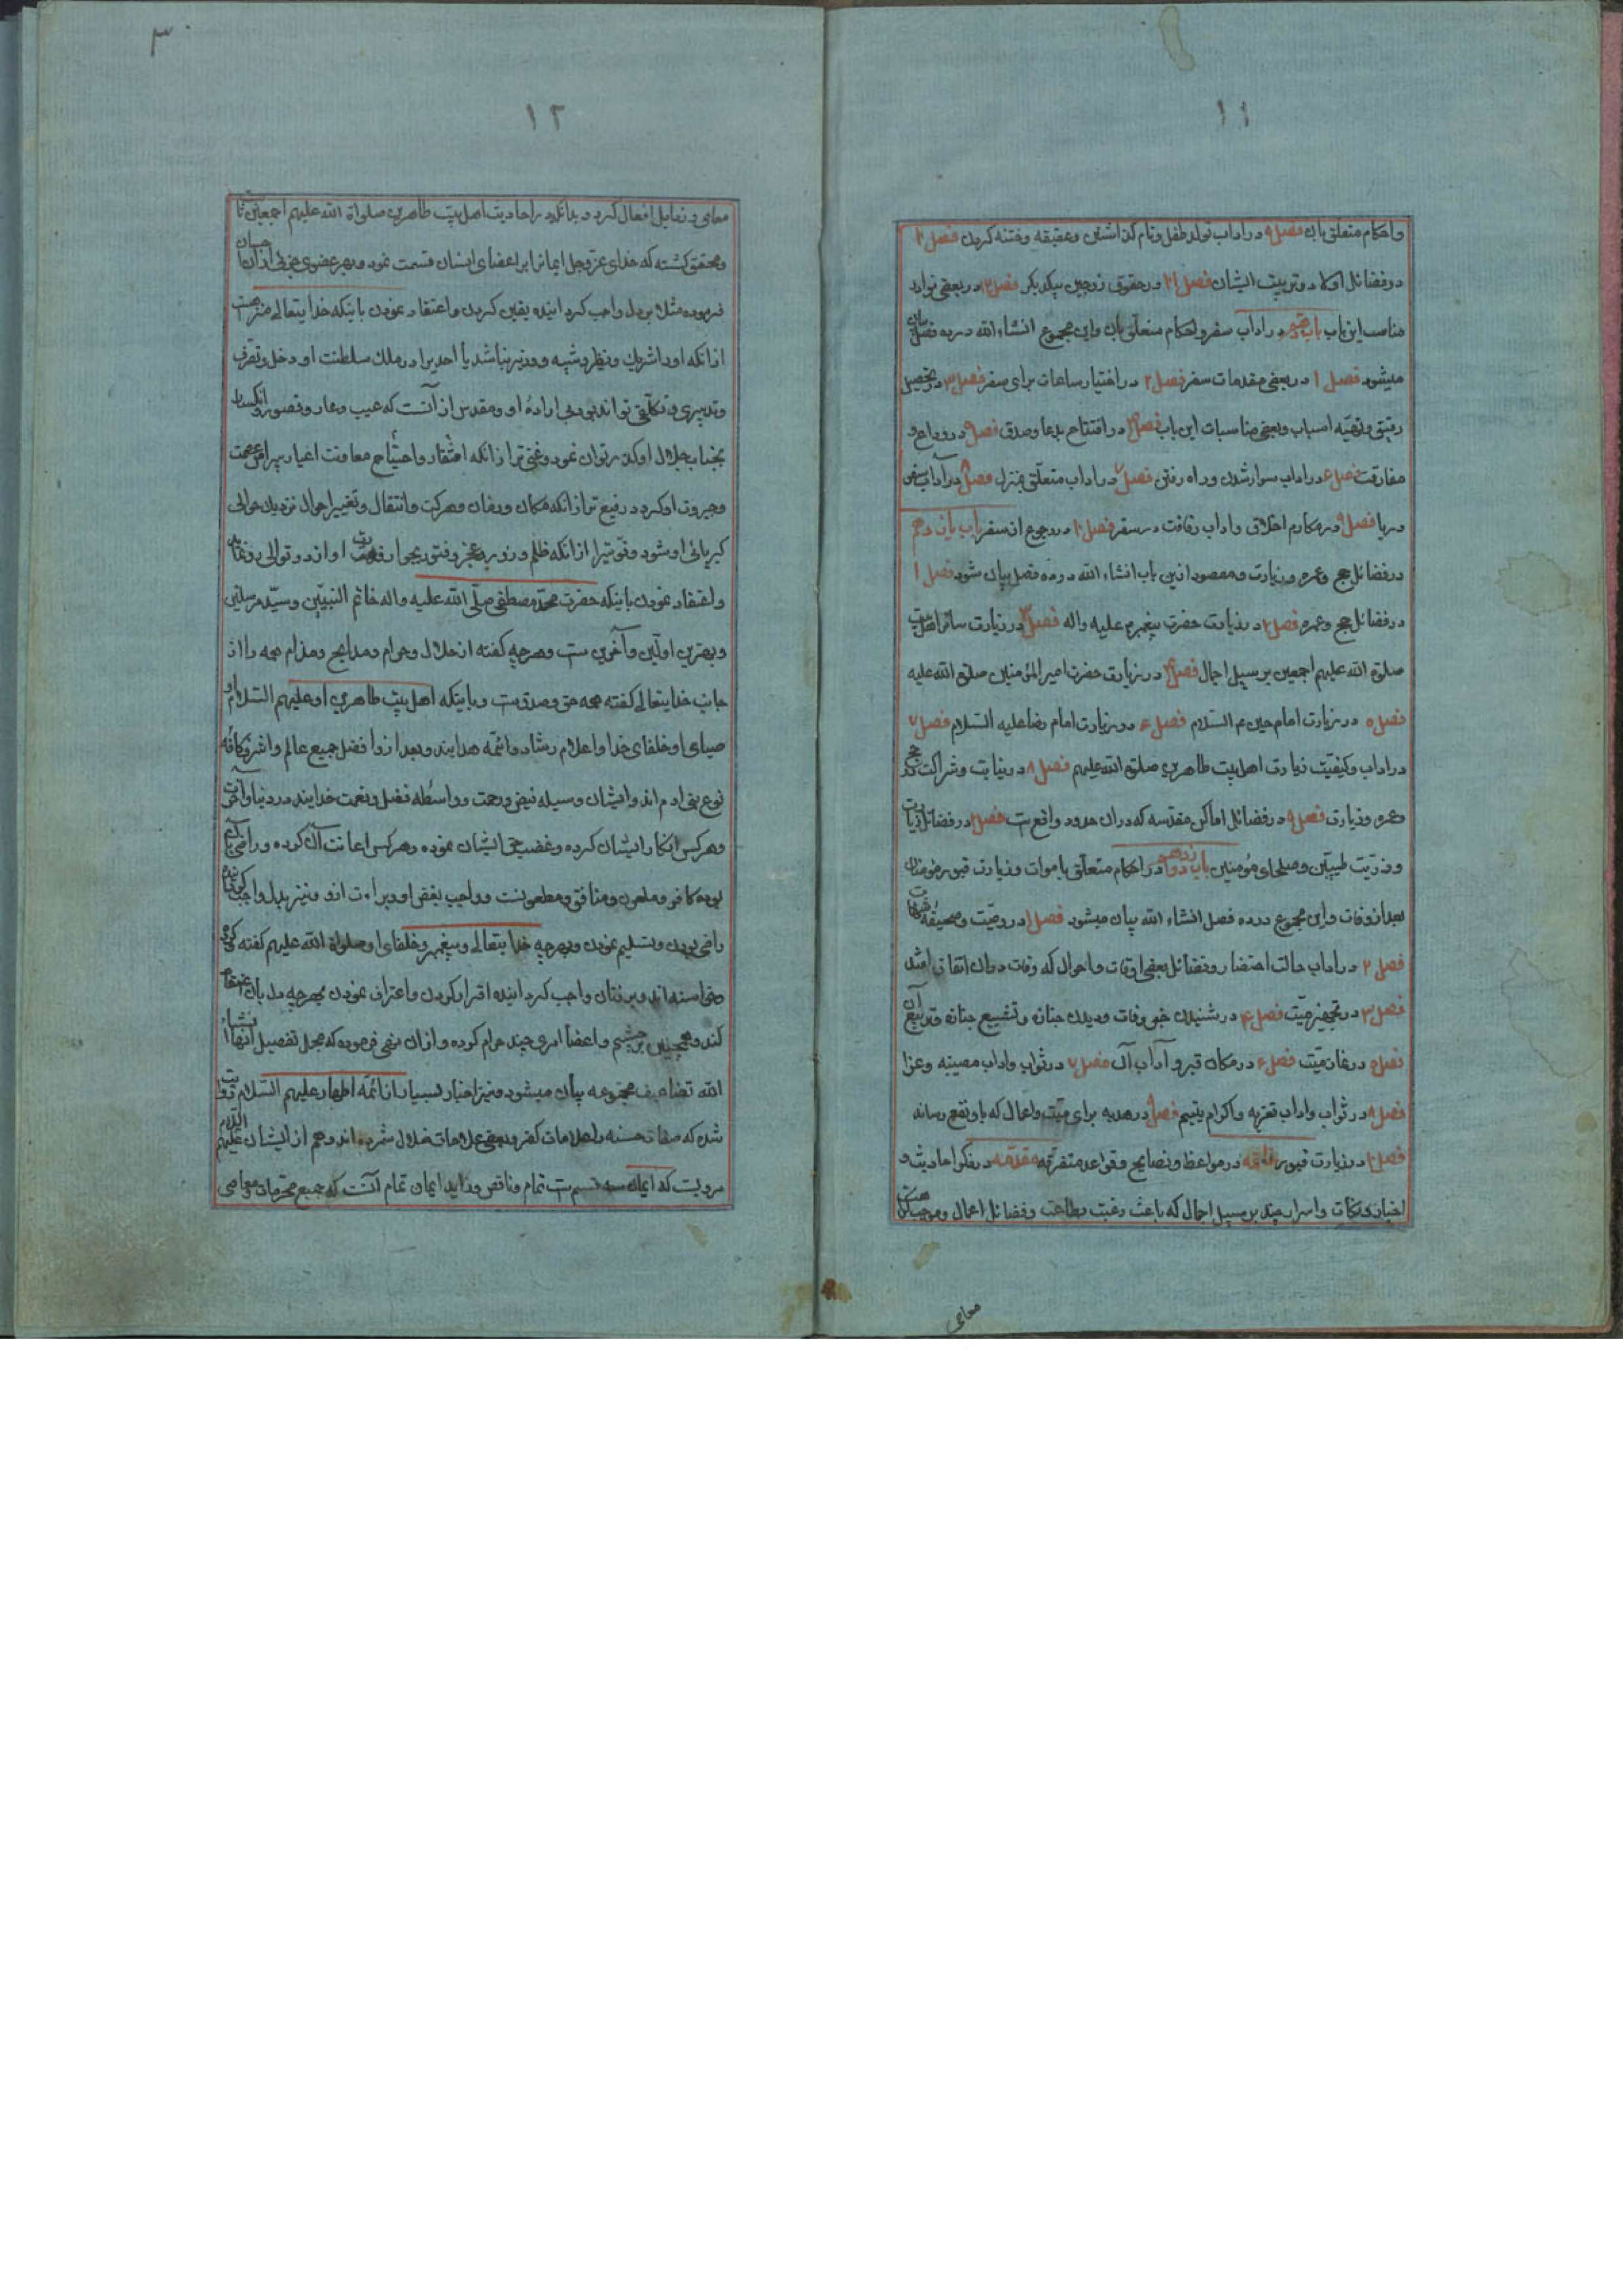 ١١
واحکام متعلق بان فصل ٩ در اداب تولد طفل و نام کذاشتن و عقیقه و ختنه کردن فصل ١٠
در فضائل اولاد و تربیت ایشان فصل ١١ در حقوق زوجین بیکدیکر فصل ١٢ در بعضی نوادر
مناسب این باب باب دهم در اداب سفر و احکام متعلق بان و این مجموع انشاء الله در ده فصل بیان
میشود فصل ١ در بعضی مقدمات سفر فصل ٢ در اختیار ساعات برای سفر فصل ٣ در تحصیل
رفیق و تهیّه اسباب و بعضی مناسبات این باب فصل ٤ در افتتاح بدعا و صدق فصل ٥ در وداع و
مفارقت فصل ۶ در اداب سوار شدن و راه رفتن فصل ٧ در اداب متعلّق بمنزل فصل ٨ در آداب سفر
دریا فصل ٩ در مکارم اخلاق و اداب رفاقت در سفر فصل ١٠ در رجوع از سفر باب یازدهم
در فضائل حج و عمره و زیارت و مقصود ازین باب انشاء الله در ده فصل بیان شود فصل ١
در فضائل حج و عمره فصل ٢ در زیارت حضرت پیغمبرم علیه و اله فصل ٣ در زیارت سائر اهل بیت
صلوة الله علیهم اجمعین بر سبیل اجمال فصل ٤ در زیارت حضرت امیر المؤمنین صلوة الله علیه
فصل ٥ در زیارت امام حسین عم السّلام فصل ۶ در زیارت امام رضا علیه السّلام فصل ٧
در اداب و کیفیّت زیارت اهل بیت طاهرین صلوة الله علیهم فصل ٨ در نیابت و شراکت در حج
و عمره و زیارت فصل ٩ در فضائل اماکن مقدّسه که در ان حدود واقع ست فصل ١٠ در فضائل زیارت
و ذرّیّت طیّبین و صلحای مؤمنین باب دوازدهم در احکام متعلّق باموات و زیارت قبور مؤمنان
بعد از وفات و این مجموع در ده فصل انشاء الله بیان میشود فصل ١ در وصیّت و صحیفه
فصل ٢ در اداب حالت احتضار و فضائل بعضی اوقات و احوال که وفات در ان اتفاق افتد
فصل ٣ در تجهیز میّت فصل ٤ در شنیدن خبر وفات و دیدن جنازه و تشییع جنازه و تربیع آن
فصل ٥ در نماز میّت فصل ۶ در مکان قبر و آداب آن فصل ٧ در ثواب و اداب مصیبه و عزا
فصل ٨ در ثواب و اداب تعزیه و اکرام یتیم فصل ٩ در هدیه برای میّت و اعمال که باو نفع رساند
فصل ١٠ در زیارت قبور خاتمه در مواعظ و نصایح و قواعد متفرّقه مقدّمه در ذکر احادیث و
اخبار و نکات و اسرار چند بر سبیل اجمال که باعث رغبت بطاعت و فضائل اعمال و موجب کراهت
معاصی
٣
١٢
معاصی و رذایل افعال کردد بدانکه در احادیث اهل بیت طاهرین صلواة الله علیهم اجمعین ثابت
و محقق کشته که خدای عزّوجل ایمانرا بر اعضای انسان قسمت نمود و بهر عضوی جزوی از ان
فرموده مثلا بر دل واجب کردانیده یقین کردن و اعتقاد نمودن باینکه خدایتعالی منزهست
از انکه او را شریک و نظیر و شبیه و وزیر باشد یا احدیرا در ملک سلطنت او دخل و تصّرف
و تدبیری و تکلّفی تواند بود بی ارادهٔ او و مقدس از آنست که عیب و عار و قصور و انکسار
بجناب جلال او کذر توان نمود و غنی تر از انکه افتقار و احتیاج معاونت اغیار پیرامن عصمت
و جبروت او کردد رفیع تر از انکه مکان و زمان و حرکت و انتقال و تغییر احوال نزدیک حوالی
کبریائی او شود و قوی‌تر از انکه ظلم و زور و عجز و فتور بجوار رفعت او از در توالی و زمان
و اعتقاد نمودن باینکه حضرت محمّد مصطفی صلّی الله علیه و اله خاتم النبیّین و سیّد مرسلین
و بهترین اوّلین و آخرین ست و هر چه کفته از حلال و حرام و مدایح و مذام همه را از
جانب خدایتعالی کفته همه حق و صدق ست و باینکه اهل بیت طاهرین او علیهم السّلام او
صیای او و خلفای خدا و اعلام رشاد و ائمّه هدایند و بعد از او افضل جمیع عالم و اشرف کافّه
نوع بنی ادم اند و ایشان وسیله فیض و رحمت و واسطه فضل و نعمت خدایند در دنیا و آخرت
و هر کس انکار ایشان کرده و غضب حق ایشان نموده و هر کس اعانت آن کرده و راضی بآن
بوده کافر و ملعون و منافق و مطعونست و واجب بغض او و براءت ازو و نیز بدل واجب کردانیده
راضی بودن و تسلیم نمودن و بهر چه خدایتعالی و پیغمبر و خلفای او صلواة الله علیهم کفته
اند و بر زبان واجب کردانیده اقرار کردن و اعتراف نمودن بهر چه دل بان اعتقاد
کند و همچنین بر چشم و اعضا امری چند حرام کرده و از ان نهی فرموده که مجمل تفصیل آنها انشاء
الله تضاعیف مجموعه بیان میشود و نیز اخبار بسیار از ائمّه اطهار علیهم السّلام روایت
شده که صفات حسنه را علامات کفر و بعضی علامات ضلال شمرده اند و هم از ایشان علیهم السّلام
مرویست که ایمان سه قسم ست تمام و ناقص و زاید ایمان تمام آنست که جمیع محّرمات و معاصی